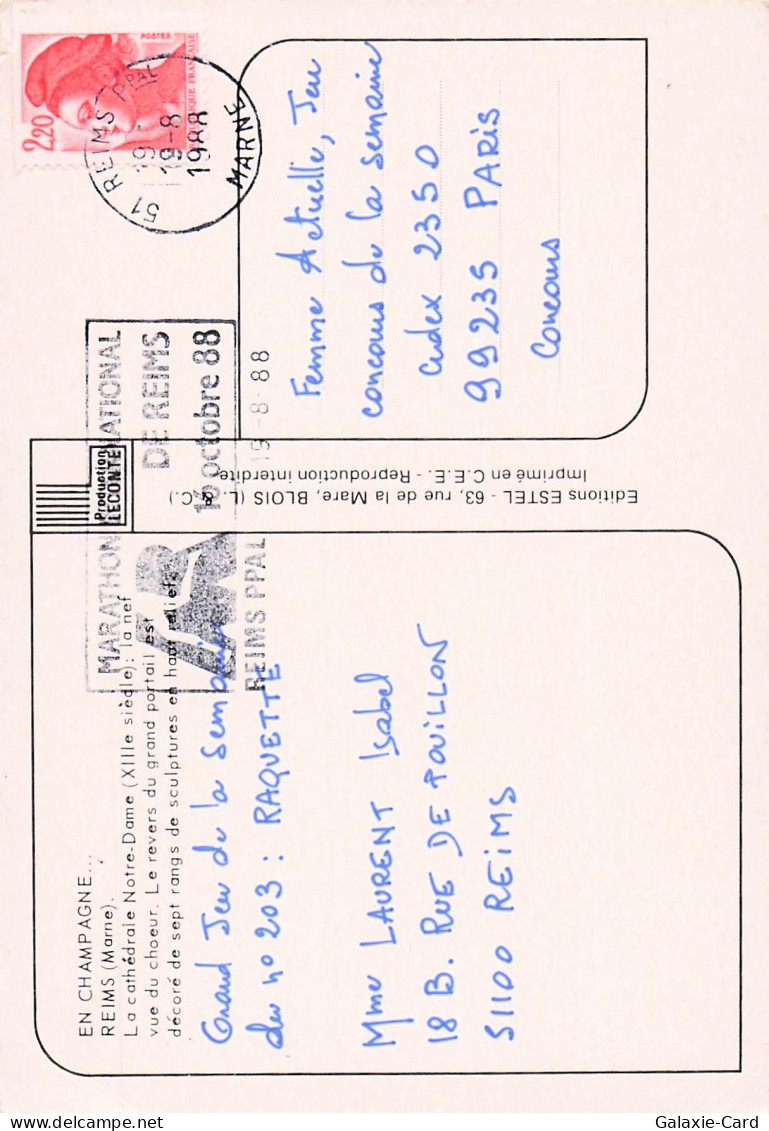 EN CHAMPAGNE...
REIMS (Marne).
La cathédrale Notre-Dame (XIIIe siècle): la nef
vue du choeur. Le revers du grand portail est
décoré de sept rangs de sculptures en haut relief.
Grand Jeu de la semaine
du no 203 : RAQUETTE
Mme LAURENT Isabel
18 B. RUE DE POUILLON
51100 REIMS
Production
LECONTE
Editions ESTEL - 63, rue de la Mare, BLOIS (L. & C.)
Imprimé en C.E.E. - Reproduction interdite
MARATHON NATIONAL
DE REIMS
16 octobre 88
REIMS PPAL 19-8-88
POSTES
2,20
51 REIMS PPAL
19-
19-8
1988
MARNE
Femme Actuelle, Jeu
concours de la semaine
Cedex 2350
99235 PARIS
Concours
Galaxie-Card